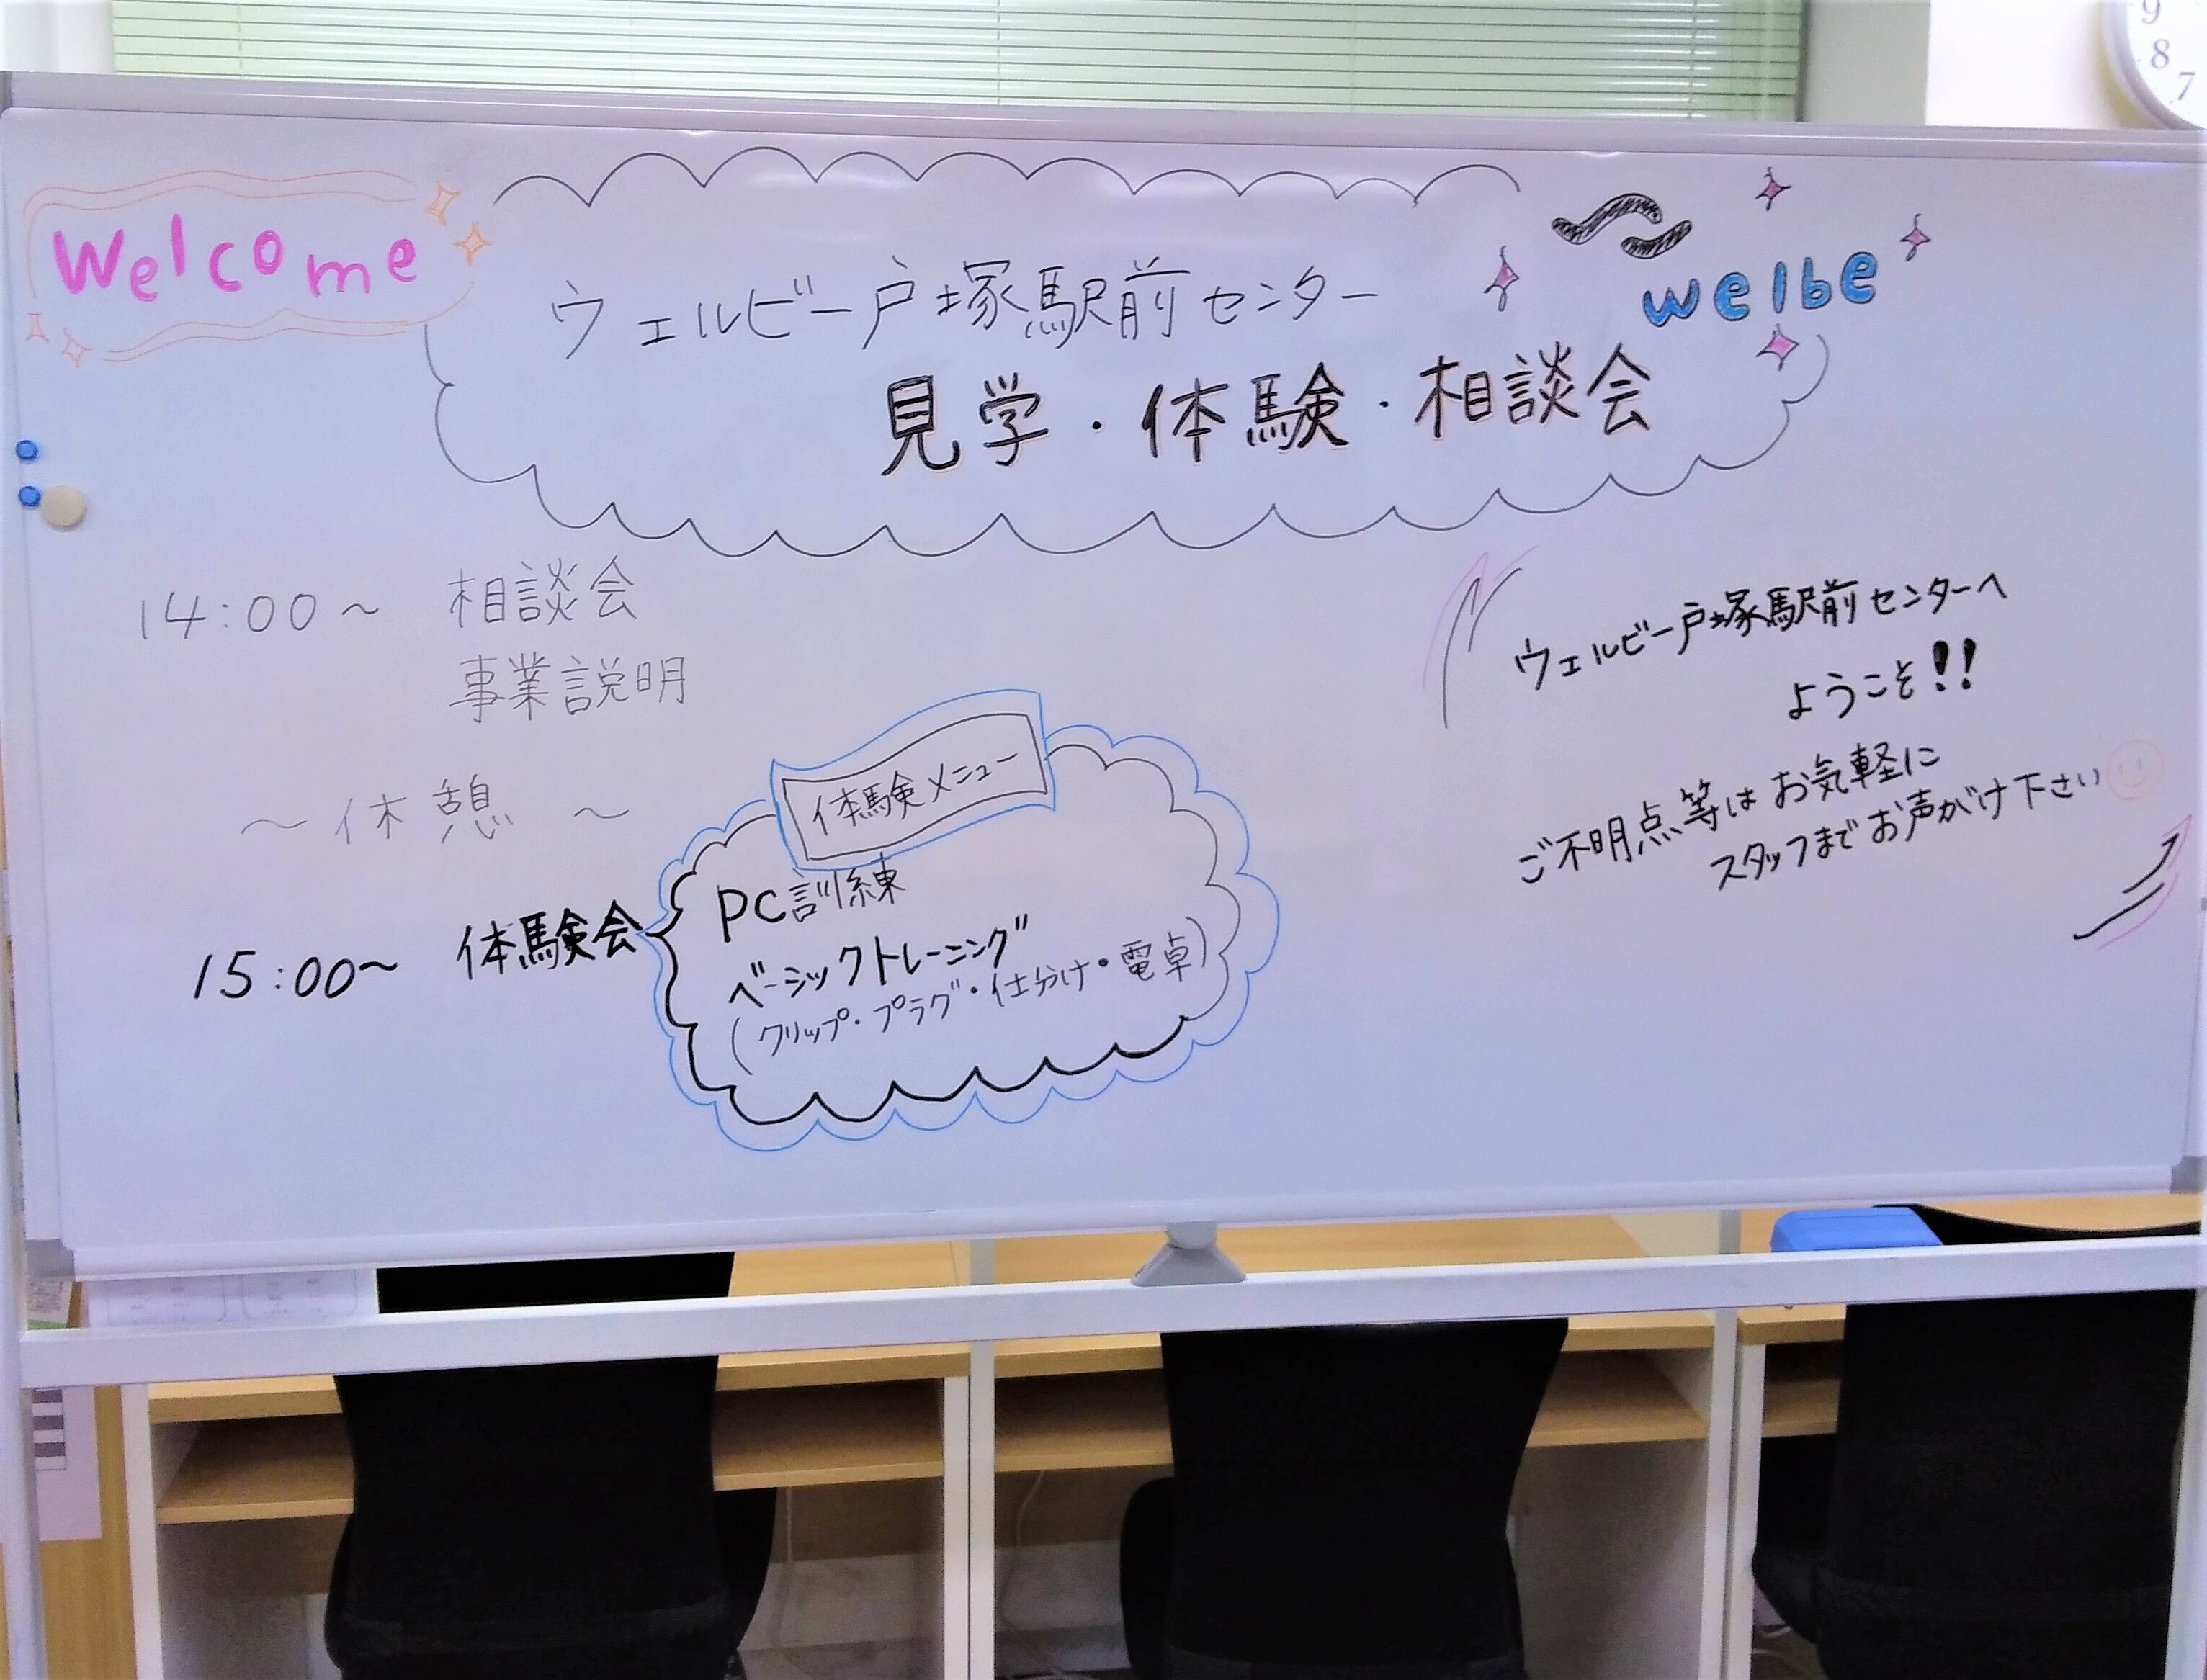 Welcome
ウェルビー戸塚駅前センター
welbe
見学・体験・相談会
14:00～ 相談会
事業説明
～休憩～
15:00～ 体験会
体験メニュー
PC訓練
ベーシックトレーニング
(クリップ・プラグ・仕分け・電卓)
ウェルビー戸塚駅前センターへ
ようこそ!!
ご不明点等はお気軽に
スタッフまでお声がけ下さい
9
8
7